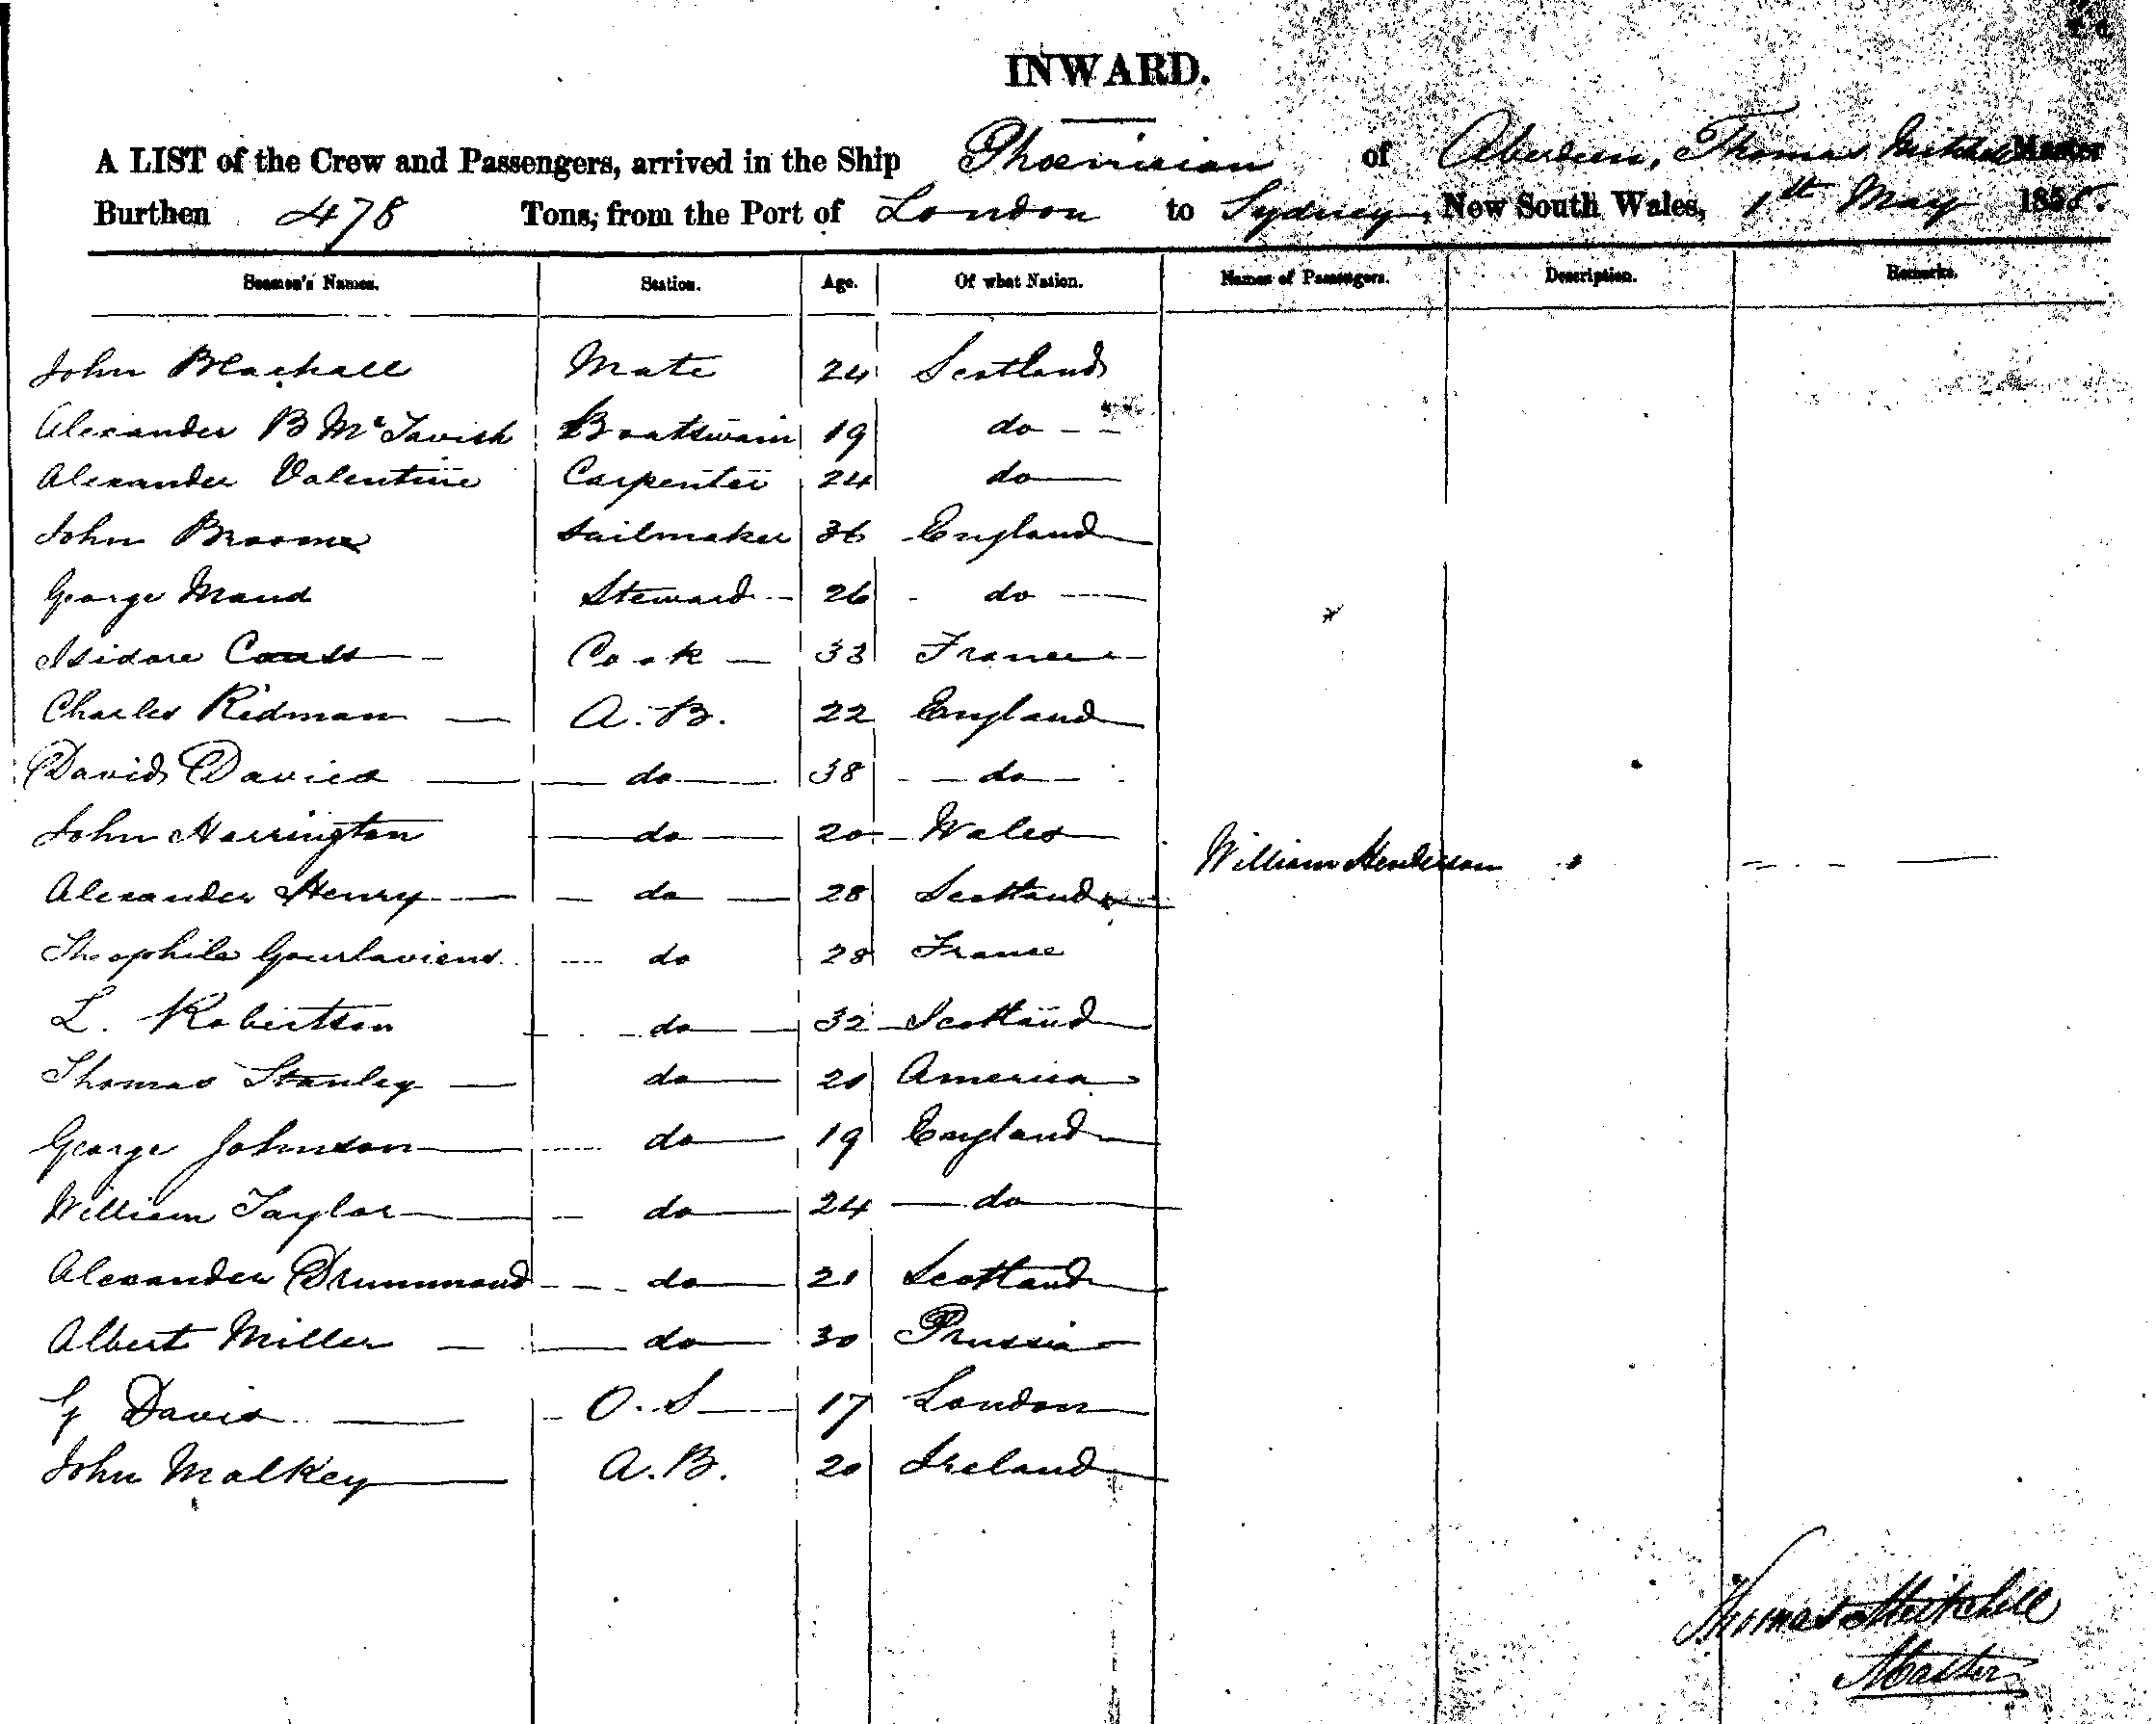 INWARD.
A LIST of the Crew and Passengers, arrived in the Ship Phoenician of Aberdeen, Thomas Mitchell Master
Burthen 478 Tons, from the Port of London to Sydney, New South Wales, 1th May 185
Seamen's Names. Station. Age. Of what Nation. Names of Passengers. Description. Remarks.
John Blackall Mate 24 Scotland
Alexander B McTavish Boatswain 19 do
Alexander Valentine Carpenter 24 do
John Broome Sailmaker 36 England
George Maud Steward 26 do
Isidore Cook 33 France
Charles Ridman A.B. 22 England
David Davies do 38 do
John Harrington do 20 Wales
William Henderson
Alexander Henry do 28 Scotland
Theophile do 28 France
L. Robertson do 32 Scotland
Thomas Stanley do 20 America
George Johnson do 19 England
William Taylor do 24 do
Alexander Drummond do 21 Scotland
Albert Miller do 30 Prussia
G Davis O.S 17 London
John Malkey A.B. 20 Ireland
Thomas Mitchell
Master